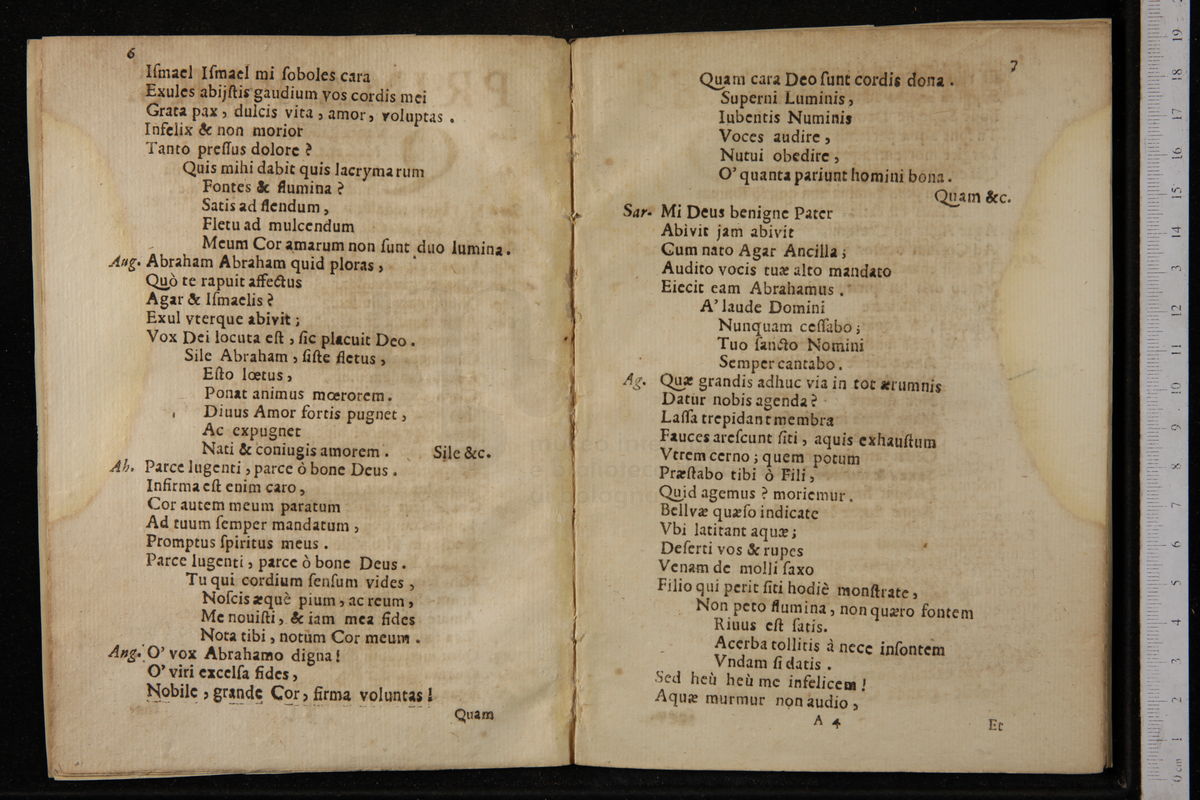 6
Iſmael Iſmael mi ſoboles cara
Exules abijſtis gaudium vos cordis mei
Grata pax, dulcis vita, amor, voluptas.
Infelix & non morior
Tanto preſſus dolore?
Quis mihi dabit quis lacrymarum
Fontes & flumina?
Satis ad flendum,
Fletu ad mulcendum
Meum Cor amarum non ſunt duo lumina.
Ang. Abraham Abraham quid ploras,
Quò te rapuit affectus
Agar & Iſmaelis?
Exul vterque abivit;
Vox Dei locuta eſt, ſic placuit Deo.
Sile Abraham, ſiſte fletus,
Eſto lœtus,
Ponat animus mœrorem.
Diuus Amor fortis pugnet,
Ac expugnet
Nati & coniugis amorem. Sile &c.
Ab. Parce lugenti, parce ò bone Deus.
Infirma eſt enim caro,
Cor autem meum paratum
Ad tuum ſemper mandatum,
Promptus ſpiritus meus.
Parce lugenti, parce ò bone Deus.
Tu qui cordium ſenſum vides,
Noſcis æquè pium, ac reum,
Me nouiſti, & iam mea fides
Nota tibi, notum Cor meum.
Ang. O' vox Abrahamo digna!
O' viri excelſa fides,
Nobile, grande Cor, firma voluntas!
Quam
7
Quam cara Deo ſunt cordis dona.
Superni Luminis,
Iubentis Numinis
Voces audire,
Nutui obedire,
O' quanta pariunt homini bona.
Quam &c.
Sar. Mi Deus benigne Pater
Abivit jam abivit
Cum nato Agar Ancilla;
Audito vocis tuæ alto mandato
Eiecit eam Abrahamus.
A' laude Domini
Nunquam ceſſabo;
Tuo ſancto Nomini
Semper cantabo.
Ag. Quæ grandis adhuc via in tot ærumnis
Datur nobis agenda?
Laſſa trepidant membra
Fauces areſcunt ſiti, aquis exhauſtum
Vtrem cerno; quem potum
Præſtabo tibi ò Fili,
Quid agemus? moriemur.
Bellvæ quæſo indicate
Vbi latitant aquæ;
Deſerti vos & rupes
Venam de molli ſaxo
Filio qui perit ſiti hodiè monſtrate,
Non peto flumina, non quæro fontem
Riuus eſt ſatis.
Acerba tollitis à nece inſontem
Vndam ſi datis.
Sed heù heù me infelicem!
Aquæ murmur non audio,
A 4
Et